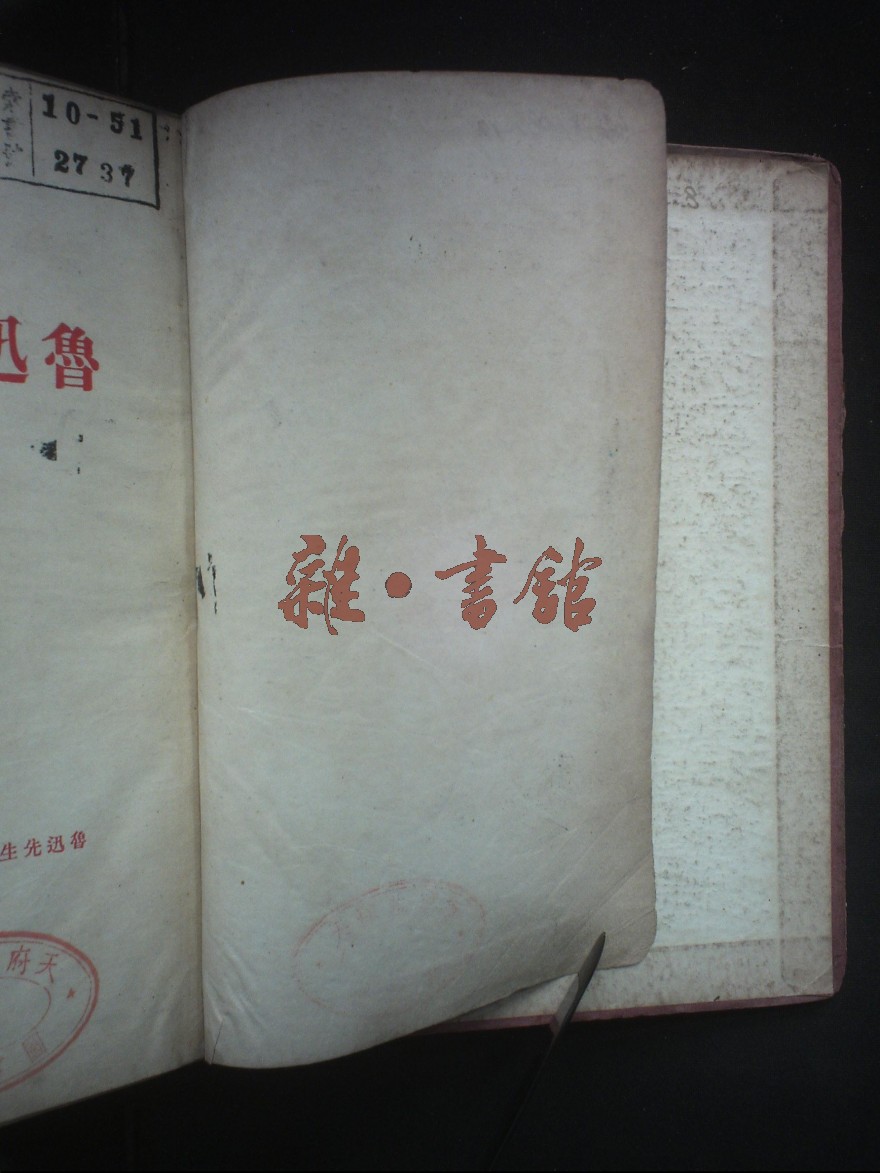 10-51
2737
魯迅
雜·書館
魯迅先生
天府